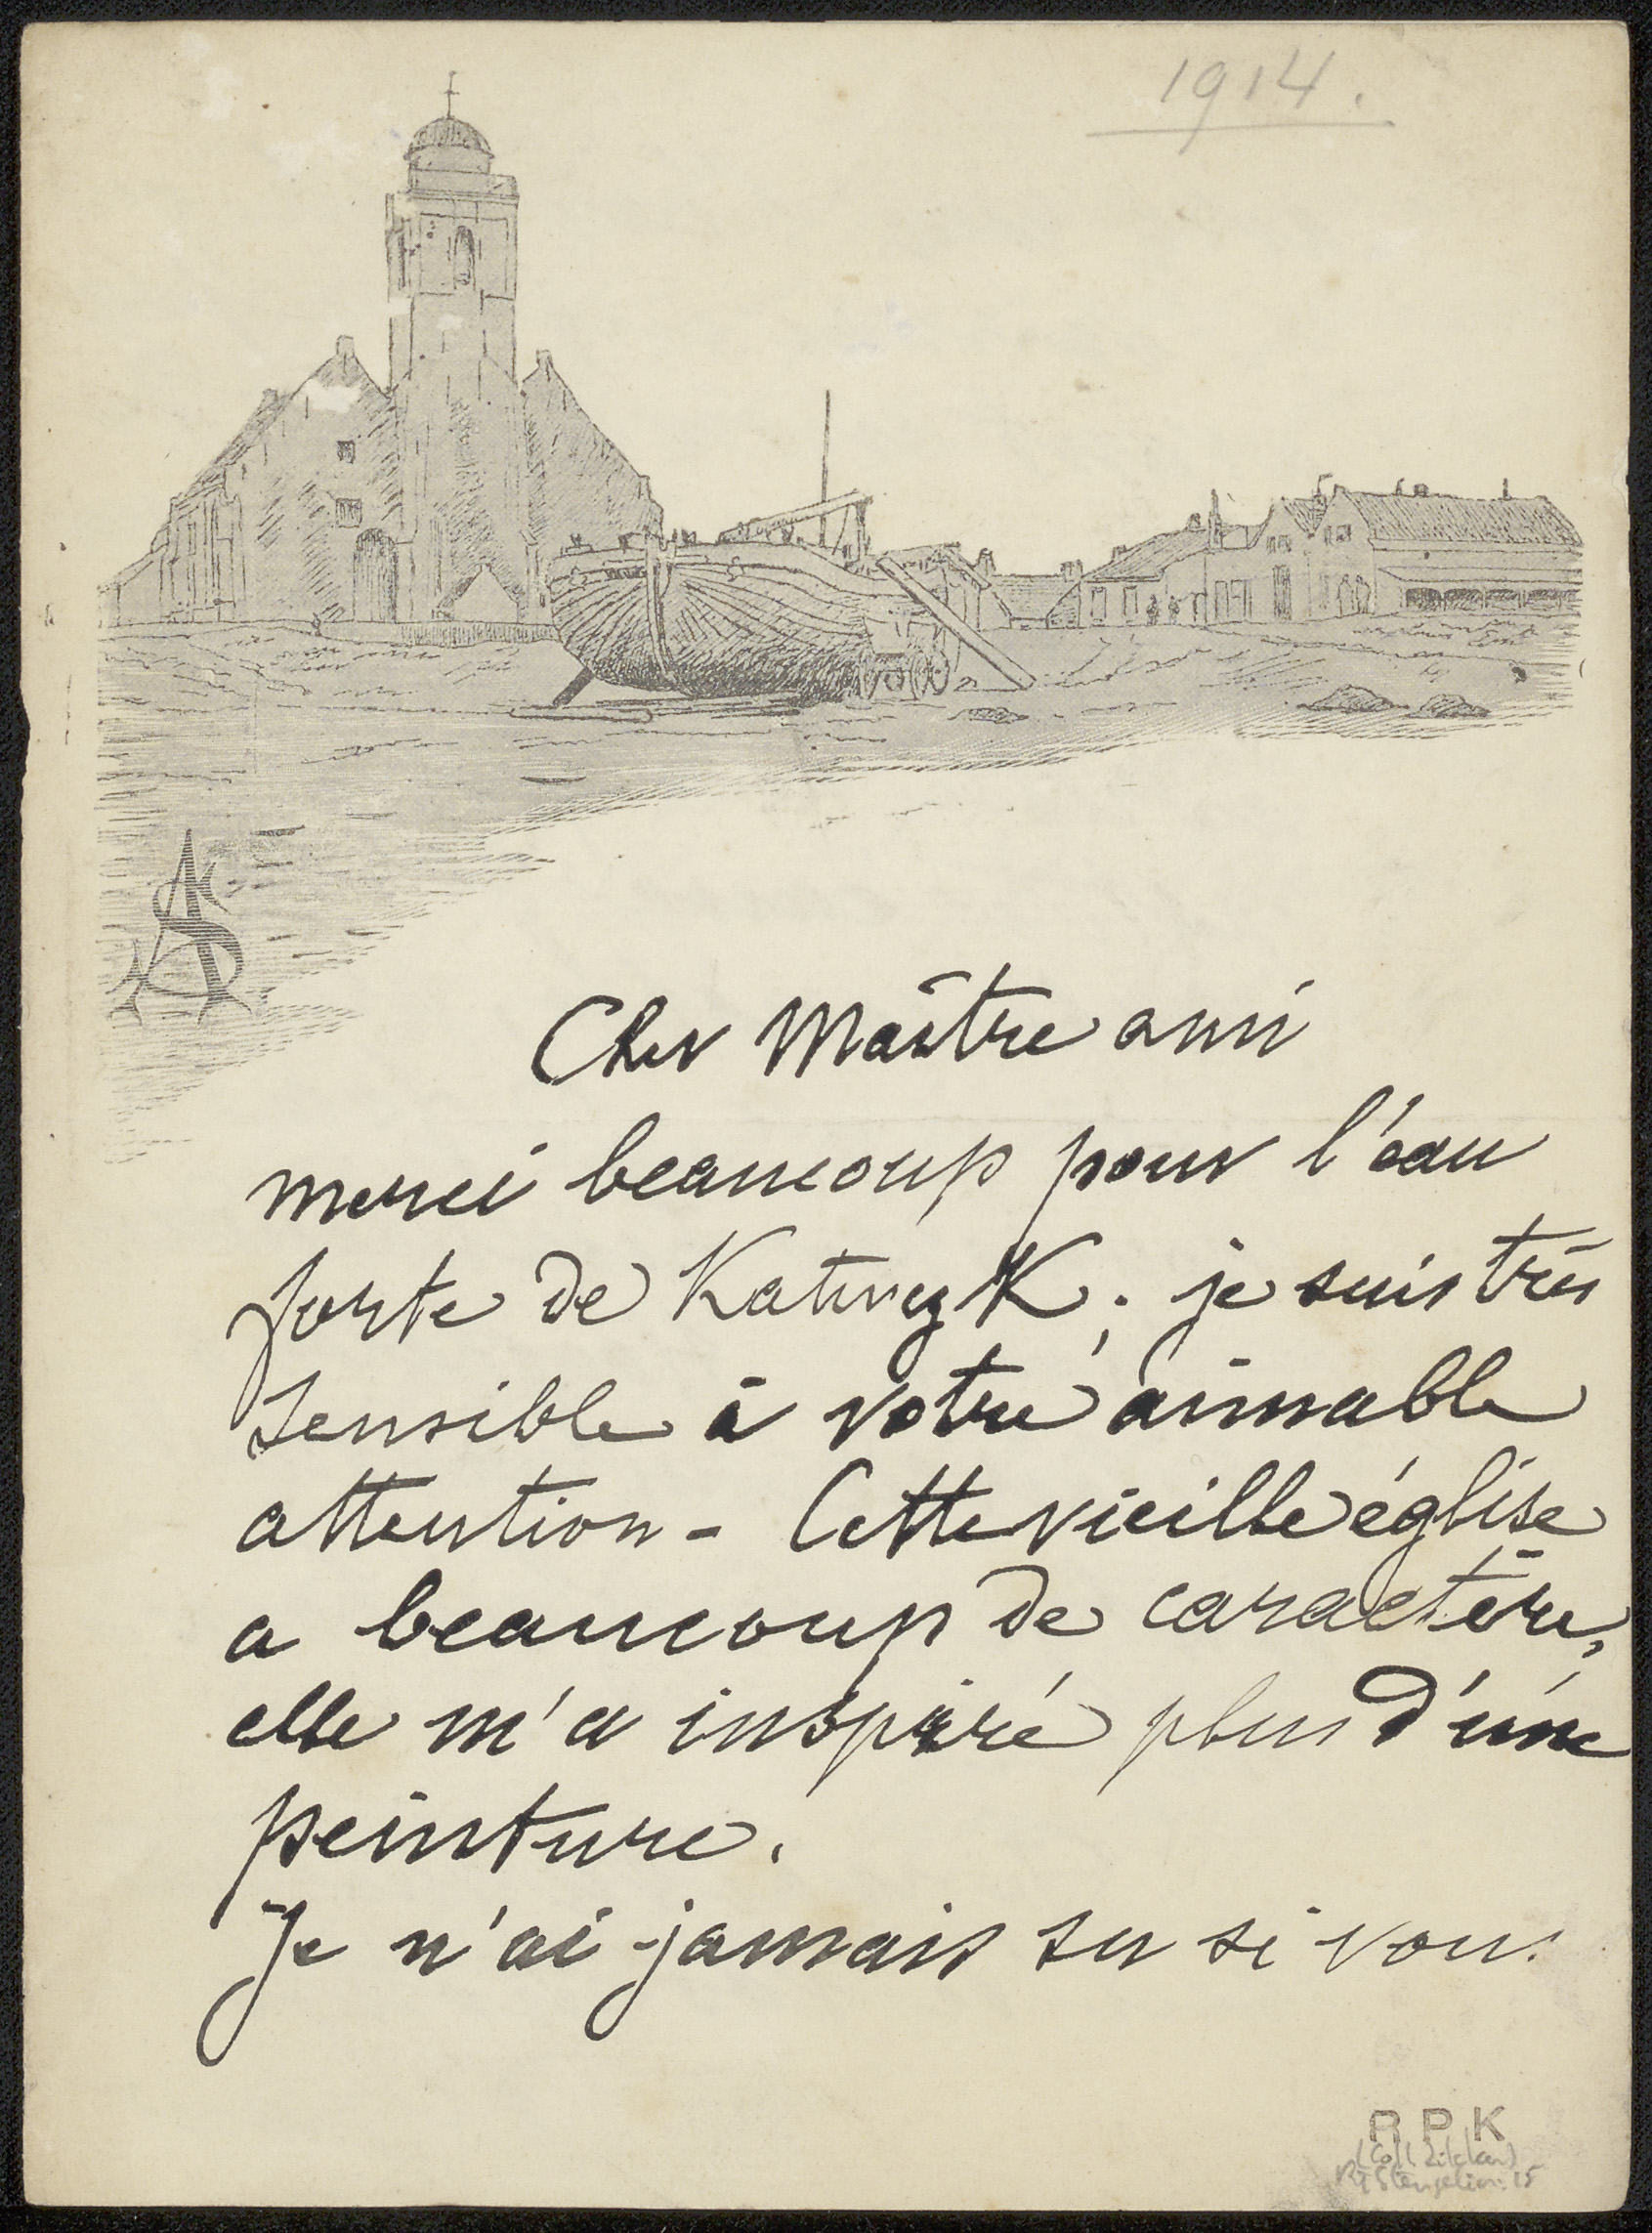 1914.
Cher Maître ami
merci beaucoup pour l'eau
forte de Katwyk; je suis très
sensible à votre aimable
attention - Cette vieille église
a beaucoup de caractère,
elle m'a inspiré plus d'une
peinture.
Je n'ai jamais su si vous
R P K
(Coll Zilcken)
Stengelin 15